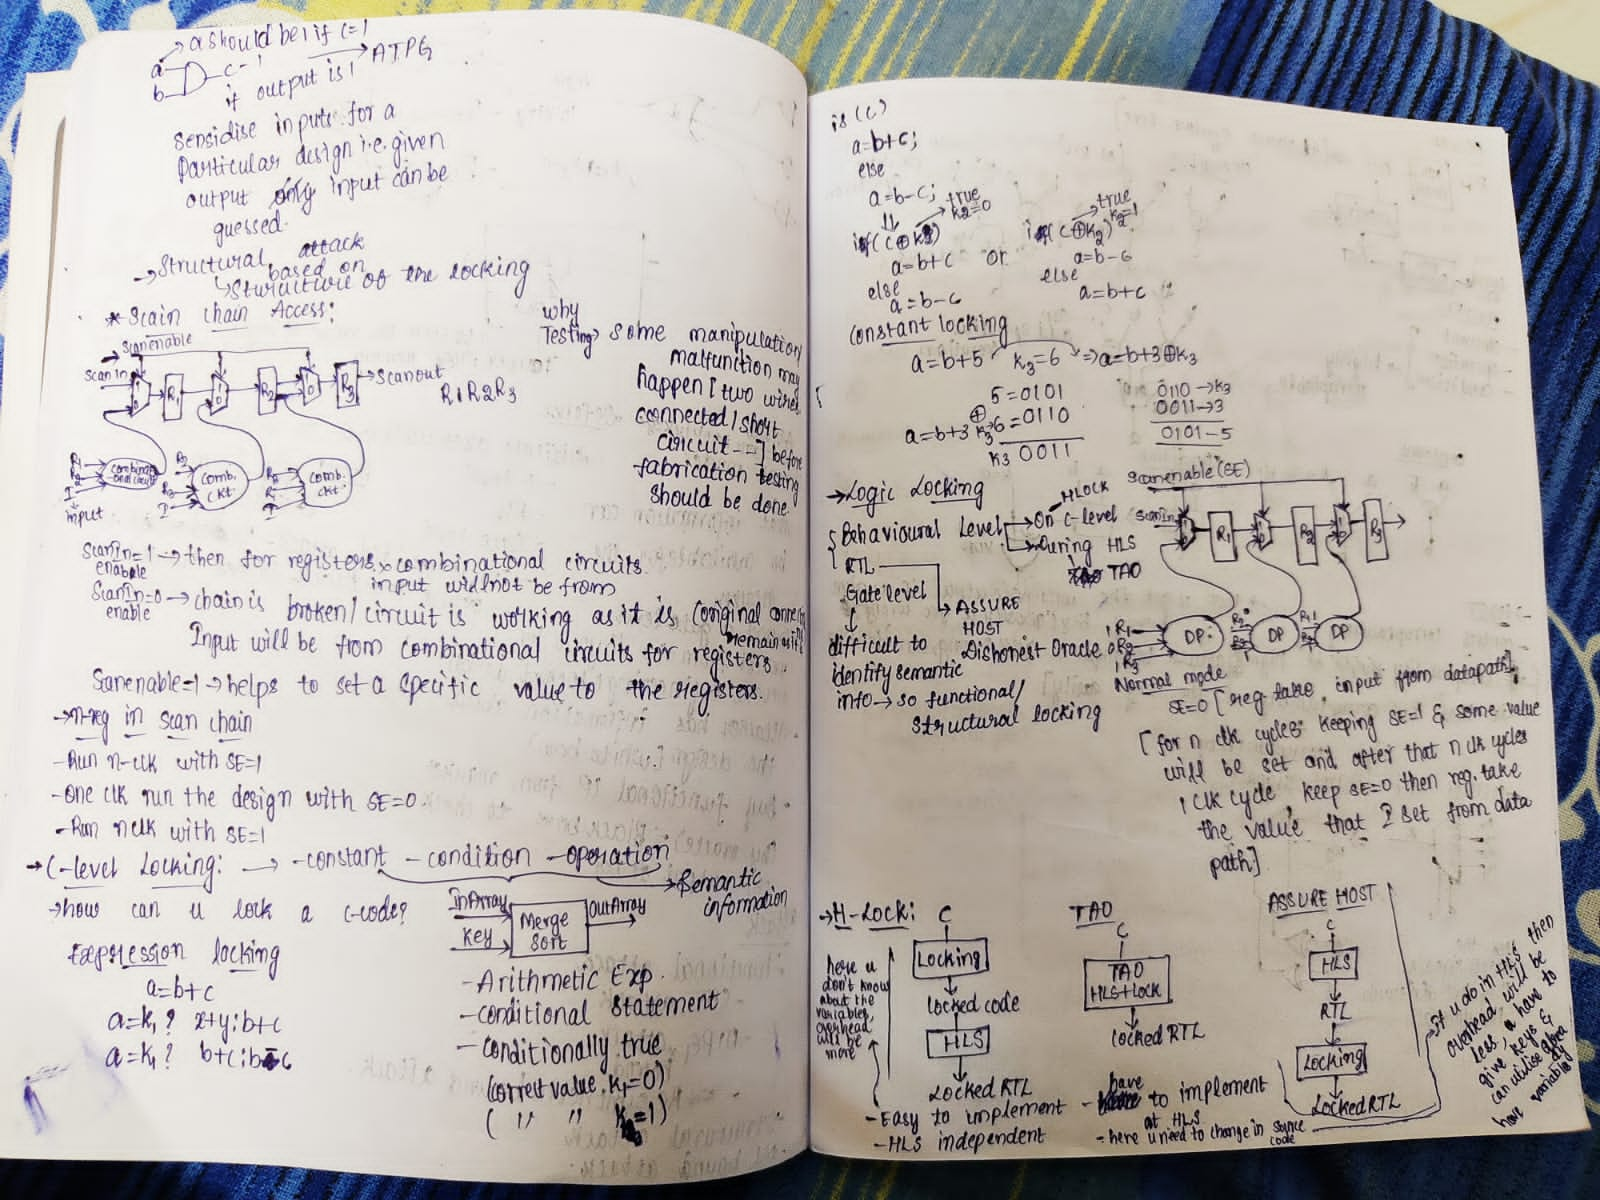 a should be 1 if c=1
a
b
c-1
if output is 1
ATPG
Sensidise inputs for a
Particular design i.e. given
output only input can be
guessed.
→Structural attack
based on
↳Sturuiture of the locking
* Scain chain Access:
Scanenable
Scanin
R1
R2
R3
Scanout
R1R2R3
R1
R2
I
input
combinational circuit
R2
R3
I
Comb.
ckt
R2
R1
I
Comb.
ckt
why
Testing→ Some manipulation/
malfunction may
happen [two wires
connected/short
circuit --] before
fabrication testing
should be done
ScanIn=1 → then for registers, combinational circuits
enable
input will not be from
ScanIn=0 → chain is broken/circuit is working as it is (original
enable
remain as it is
Input will be from combinational circuits for registers.
Scanenable=1→helps to set a specific value to the registers.
→n-reg in scan chain
-Run n-clk with SE=1
-One clk run the design with SE=0
-Run nclk with SE=1
→C-level Locking: → -constant -condition -operation
→Semantic
information
→how can u lock a c-code?
InArray
Key
Merge
Sort
OutArray
Expression locking
a=b+c
a=k₁? x+y:b+c
a=k₁? b+c:b-c
-Arithmetic Exp.
-conditional statement
-conditionally true
(correct value, k₁=0)
( '' '' k₂=1)
is (c)
a=b+c;
else
a=b-c;
⇓
true
k2=0
if(c⊕k2)
a=b+c or
else
a=b-c
true
k2=1
if(c⊕k2)
a=b-c
else
a=b+c
constant locking
a=b+5 k₃=6 ⇒a=b+3⊕k₃
5=0101
⊕
a=b+3 k₃ 6=0110
k3 0011
0110→k3
0011→3
0101-5
→Logic Locking
Behavioural Level
HLOCK
→On C-level
→During HLS
TAO
RTL
→ASSURE
HOST
Gate level
↓
difficult to
identify semantic
info→so functional/
structural locking
Dishonest Oracle
Scanenable(SE)
ScanIn
R1
R2
R3
R1
R2
R3
DP
DP
DP
Normal mode
SE=0 [reg. take input from datapath]
[for n clk cycles keeping SE=1 & some value
will be set and after that n clk cycles
1 clk cycle keep SE=0 then reg. take
the value that I set from data
path]
→H-Lock:
C
Locking
Locked code
HLS
Locked RTL
here u
don't know
about the
variables,
overhead
will be
more
-Easy to implement
-HLS independent
TAO
C
TAO
HLS+LOCK
Locked RTL
-have to implement
at HLS
-here u need to change in source
code
ASSURE HOST
C
HLS
RTL
Locking
Locked RTL
→If u do in HLS then
overhead will be
less, u have to
give keys &
can utilise
how variables